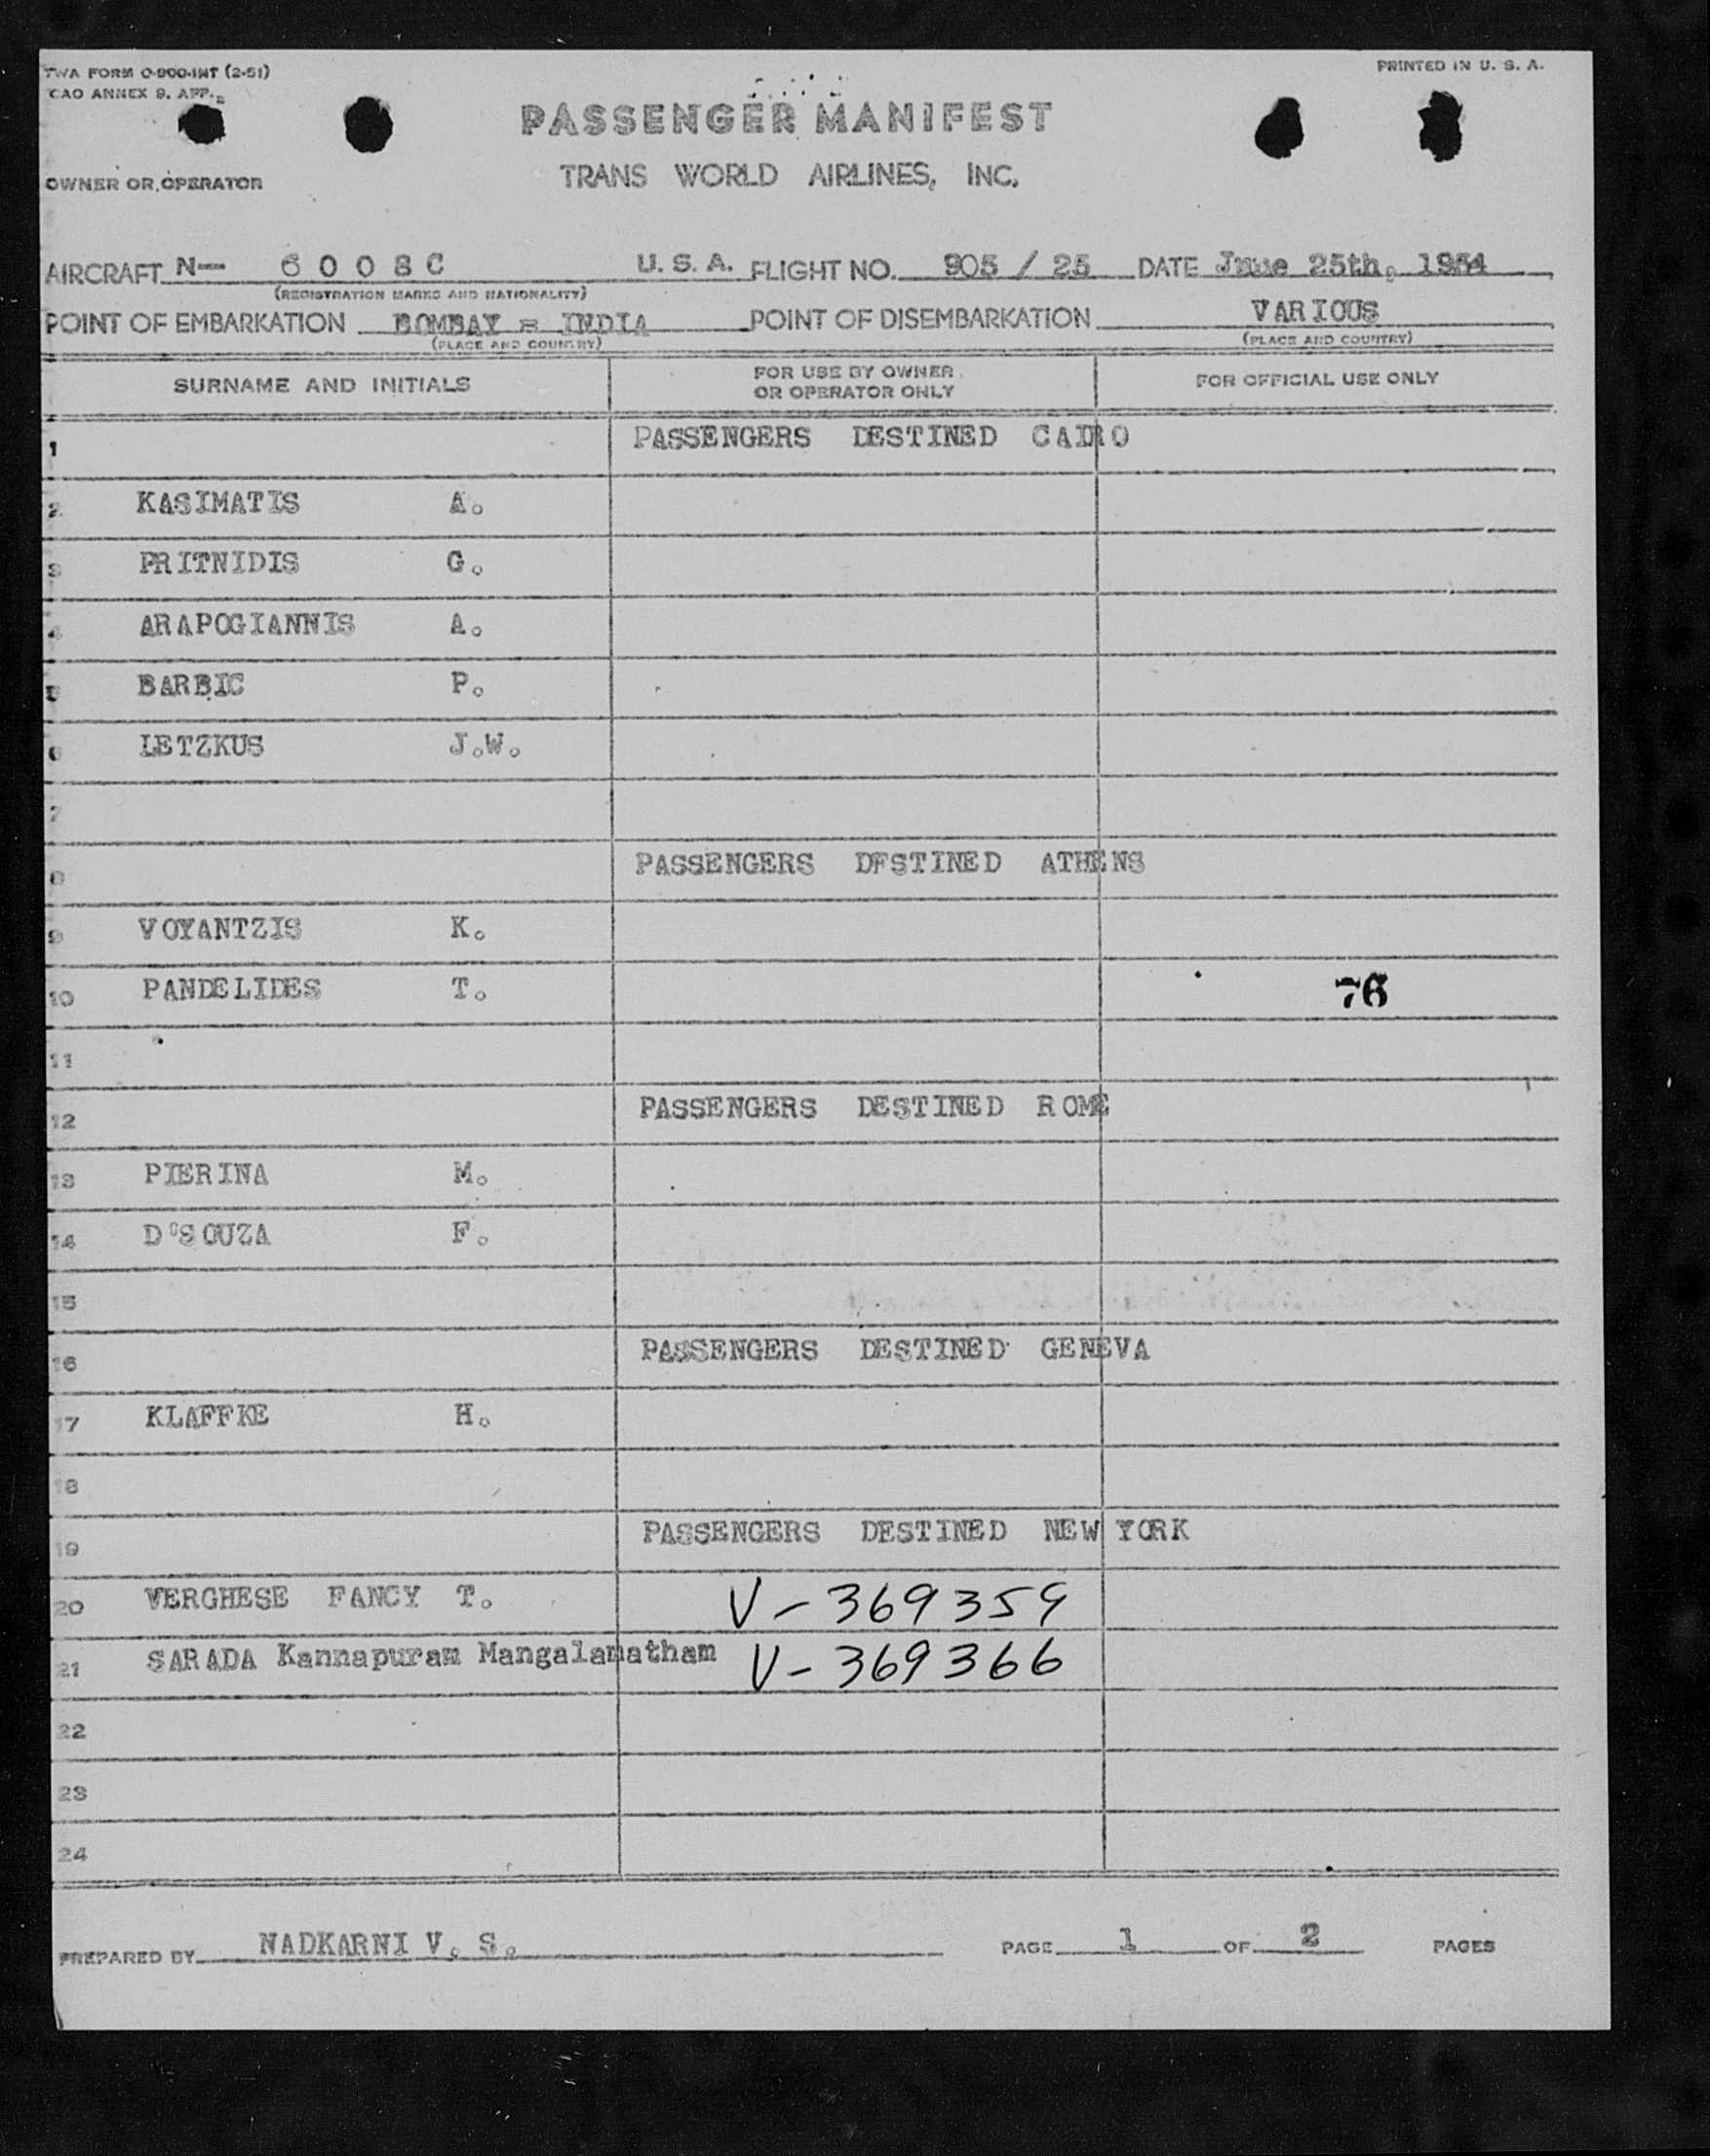 TWA FORM O-900-INT (2-51)
PRINTED IN U. S. A.
CAO ANNEX 9, APP. 2
PASSENGER MANIFEST
OWNER OR OPERATOR
TRANS WORLD AIRLINES, INC.
AIRCRAFT N-- 6 0 0 8 C U. S. A. FLIGHT NO. 905 / 25 DATE June 25th, 1954
(REGISTRATION MARKS AND NATIONALITY)
POINT OF EMBARKATION BOMBAY = INDIA POINT OF DISEMBARKATION VARIOUS
(PLACE AND COUNTRY) (PLACE AND COUNTRY)
SURNAME AND INITIALS FOR USE BY OWNER OR OPERATOR ONLY FOR OFFICIAL USE ONLY
1 PASSENGERS DESTINED CAIRO
2 KASIMATIS A.
3 PRITNIDIS G.
4 ARAPOGIANNIS A.
5 BARBIC P.
6 LETZKUS J.W.
7
8 PASSENGERS DESTINED ATHENS
9 VOYANTZIS K.
10 PANDELIDES T. 76
11
12 PASSENGERS DESTINED ROME
13 PIERINA M.
14 D'SOUZA F.
15
16 PASSENGERS DESTINED GENEVA
17 KLAFFKE H.
18
19 PASSENGERS DESTINED NEW YORK
20 VERGHESE FANCY T. V-369359
21 SARADA Kannapuram Mangalamatham V-369366
22
23
24
PREPARED BY NADKARNI V. S. PAGE 1 OF 2 PAGES